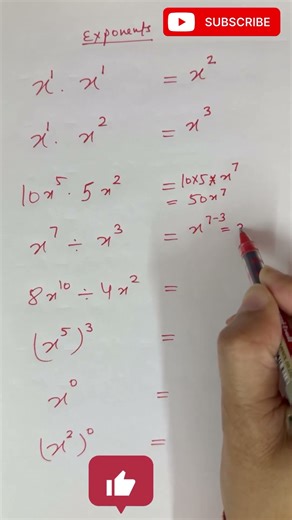 SUBSCRIBE
Exponents
x¹ · x¹ = x²
x¹ · x² = x³
10x⁵ · 5x² = 10×5×x⁷
= 50x⁷
x⁷ ÷ x³ = x⁷⁻³ =
8x¹⁰ ÷ 4x² =
(x⁵)³ =
x⁰ =
(x²)⁰ =